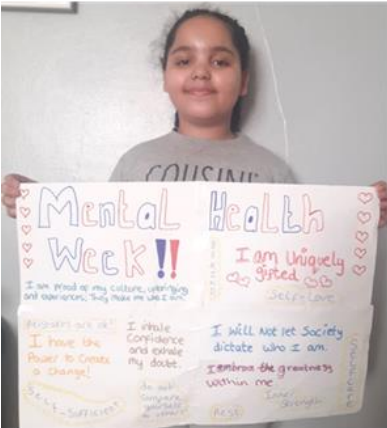 COUSINS
Mental Health
Week!!
I am proud of my culture, upbringing
and experiences. They make me who I am!
I am Uniquely
gifted
Self-Love
Mistakes are ok!
I have the
Power to Create
a Change!
SELF-Sufficient
I inhale
Confidence
and exhale
my doubt.
Do not
compare
yourself
to others!
I Will Not let Society
dictate who I am.
I embrace the greatness
within me
Inner
Strength
Rest